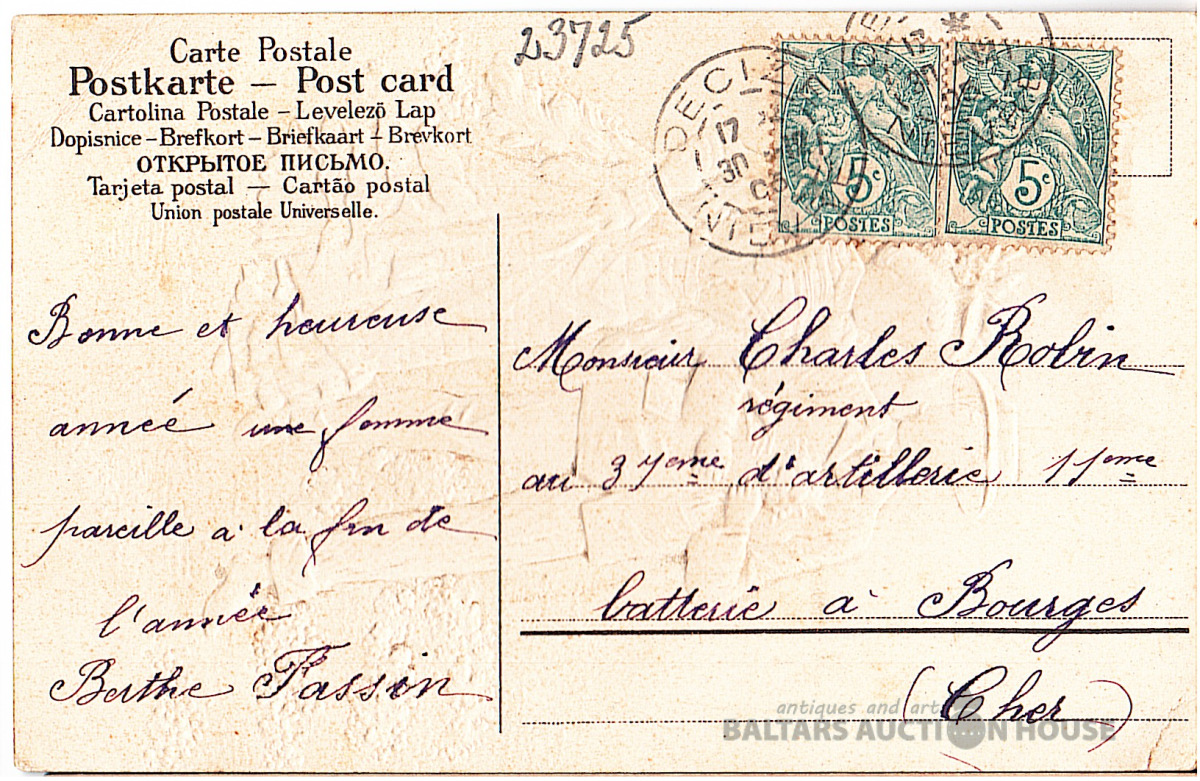 23725
Carte Postale
Postkarte – Post card
Cartolina Postale – Levelező Lap
Dopisnice – Brefkort – Briefkaart – Brevkort
ОТКРЫТОЕ ПИСЬМО.
Tarjeta postal — Cartão postal
Union postale Universelle.
DECIZ
17
30
5c
POSTES
5c
POSTES
Bonne et heureuse
année une femme
pareille à la fin de
l'année
Berthe Tassin
Monsieur Charles Robin
régiment
au 37eme d'artillerie 11eme
batterie à Bourges
(Cher)
antiques and art
BALTARS AUCTION HOUSE